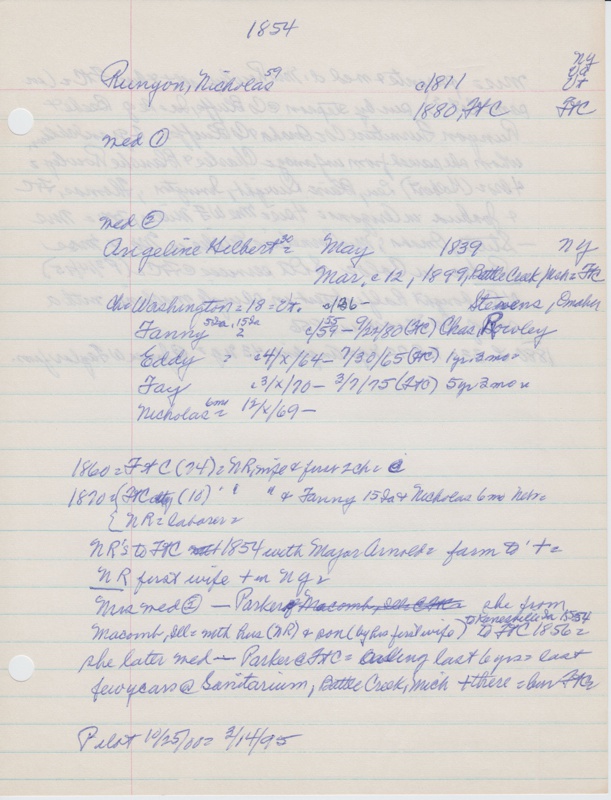 1854
NY
Runyon, Nicholas 59 c/1811
1880, FtC FtC
med ①
med ②
Angeline Helbert 30 = May 1839 NY
Mar. c 12, 1899, Battle Creek, Mich = FtC
Ch = Washington = 18 = Vt. c/36 - Stevens, Omaha
Fanny 5 Ia, 15 Ia c/55 - 9/20/80 (FtC) Chas, Rowley
Eddy = c4/x/64 - 7/30/65 (FtC) 1yr 3mo =
Fay c3/x/70 - 3/7/75 (FtC) 5yr 2mo =
Nicholas 6mo = 12/x/69 -
1860 = FtC (24) = NR, wife & first 2 ch = c
1870 = {FtC (10) " " " & Fanny 15 Ia & Nicholas 6mo Nebr =
{ NR = laborer =
NR's to FtC 1854 with Major Arnold = farm
NR first wife + in NY =
Mrs med ② - Parker of Macomb, Ill = she from
Macomb, Ill = with hus (NR) & son (by his first wife) to Kanesville Ia 1854 to FtC 1856 =
she later med - Parker @ FtC = ailing last 6 yrs = last
few years @ Sanitarium, Battle Creek, Mich + there = bur FtC =
Pilot 10/25/00 = 3/14/95